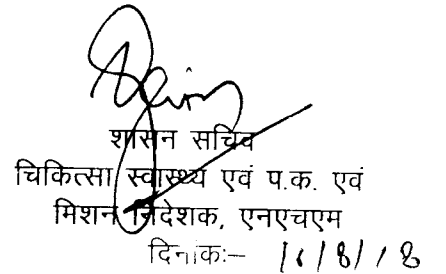 शासन सचिव
चिकित्सा स्वास्थ्य एवं प.क. एवं
मिशन निदेशक, एनएचएम
दिनांकः–